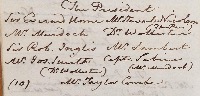 The President
Sir Everard Home Mr Stuart Nicolson
Mr. Murdoch Dr. Wollaston
Sir Rob. Inglis Mr. Lambert
Mr. Jos. Smith Capt. Sabine
(Dr. Wollaston) (Mr. Murdoch)
(10) Mr. Taylor Combe